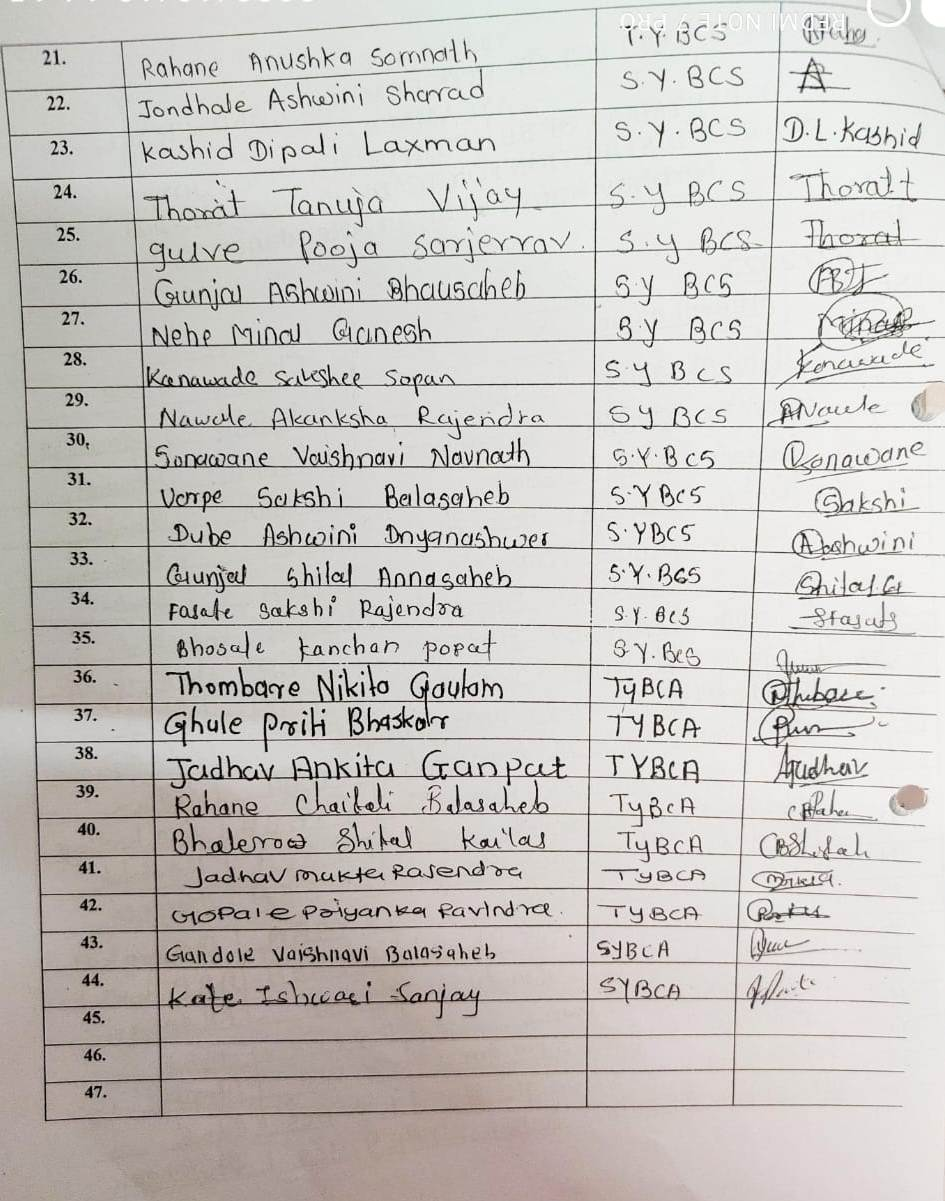 REDMI NOTE 7 PRO
21. Rahane Anushka Somnath T.Y.BCS
22. Jondhale Ashwini Sharad S.Y.BCS A
23. Kashid Dipali Laxman S.Y.BCS D.L.Kashid
24. Thorat Tanuja Vijay S.Y BCS Thorat t
25. gulve Pooja Sarjerrav. S.y BCS Thorat
26. Gunjal Ashwini Bhausaheb S.y BCS
27. Nehe Minal Ganesh S.Y BCS Minal
28. Kanawade Sakshee Sopan S.y BCS Kanawade
29. Nawale Akanksha Rajendra Sy BCS ANawle
30. Sonawane Vaishnavi Navnath S.Y.BCS Sonawane
31. Varpe Sakshi Balasaheb S.Y BCS Sakshi
32. Dube Ashwini Dnyanashwer S.YBCS Ashwini
33. Gunjal Shital Annasaheb S.Y.BCS Shital.G
34. Fasate Sakshi Rajendra S.Y.BCS
35. Bhosale kanchan popat S.Y.BCS
36. Thombare Nikita Goutam TyBCA
37. Ghule Priti Bhaskar TYBCA
38. Jadhav Ankita Ganpat TYBCA Ajadhav
39. Rahane Chaitali Balasaheb TyBCA
40. Bhalerao Shital Kailas TyBCA
41. Jadhav mukta Rajendra TYBCA
42. Gopale Priyanka Ravindra. TYBCA
43. Gandole Vaishnavi Balasaheb SYBCA
44. Kate Ishwari Sanjay SYBCA
45.
46.
47.